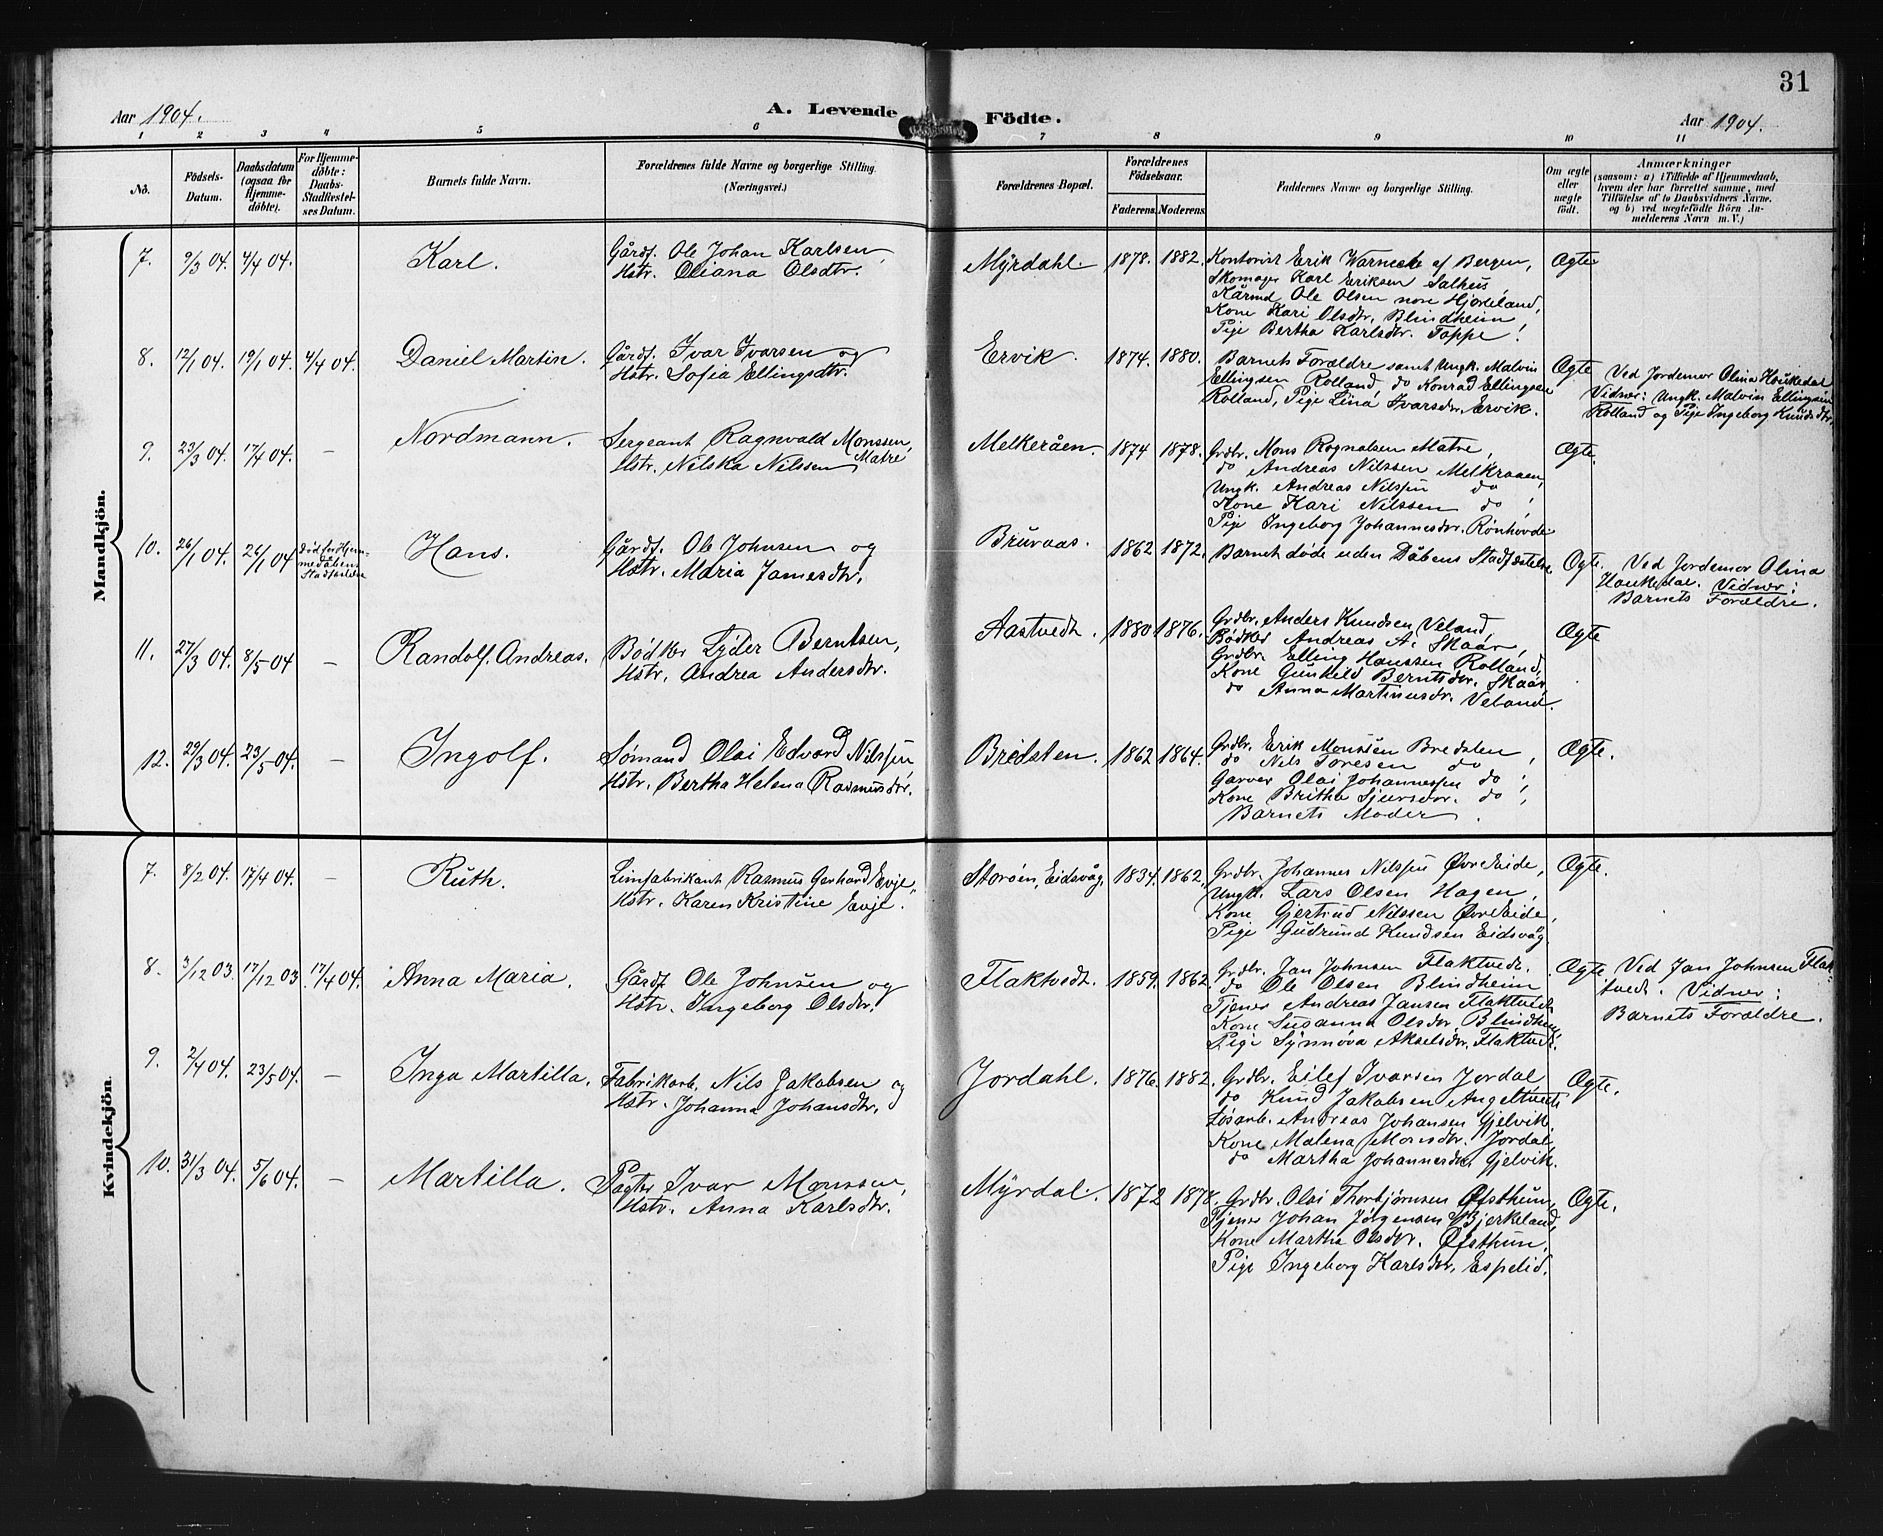 31
Aar 1904.
A. Levende Födte.
Aar 1904.
1 2 3 4 5 6 7 8 9 10 11
No.
Födsels-Datum.
Daabsdatum (ogsaa for Hjemme-döbte).
For Hjemme-döbte: Daabs-Stadfestel-ses Datum.
Barnets fulde Navn.
Forældrenes fulde Navne og borgerlige Stilling.
(Næringsvei.)
Forældrenes Bopæl.
Forældrenes Födselsaar.
Faderens. Moderens.
Faddernes Navne og borgerlige Stilling.
Om ægte eller uægte födt.
Anmærkninger
(saasom: a) i Tilfælde af Hjemmedaab,
hvem der har forrettet samme, med
Tilföielse af to Daabsvidners Navne.
og b) ved uægtefödte Börn An-
melderens Navn m. V.)
Mandkjön.
7. 9/3 04. 4/4 04. Karl. Gårdf. Ole Johan Karlsen,
Hstr. Oliana Olsdtr.
Myrdahl. 1878. 1882.
Kontorist Erik Warncke af Bergen,
Skomager Karl Eriksen Salhus
Kårmd Ole Olsen nore Hjorteland,
Kone Kari Olsdtr. Blindheim
Pige Bertha Karlsdtr. Toppe!
Ægte
8. 12/1 04. 19/1 04. 4/4 04. Daniel Martin. Gårdf. Ivar Ivarsen og
Hstr. Sofia Ellingsdtr.
Ervik. 1874. 1880.
Barnets Forældre samt Ungk. Malvin
Ellingsen Rolland, do Konrad Ellingsen
Rolland, Pige Lina Ivarsdtr. Ervik.
Ægte
Ved Jordemor Olina Haukedal
Vidner: Ungk. Malvin Ellingsen
Rolland og Pige Ingeborg Knudsdtr.
9. 23/3 04. 17/4 04. — Nordmann. Sergeant Ragnvald Monssen Matre,
Hstr. Nilska Nilssen
Melkeråen. 1874 1878.
Grdbr. Mons Rognalsen Matre,
do Andreas Nilssen Melkraaen,
Ungk. Andreas Nilssen do
Kone Kari Nilssen do,
Pige Ingeborg Johannesdtr. Rönhovde
Ægte.
10. 26/1 04. 26/1 04 Död för Hjem-
medåbens
Stadfæstelse
Hans. Gårdf. Ole Johnsen og
Hstr. Maria Jamesdtr.
Bruraas. 1862 1872.
Barnet döde uden Dåbens Stadfæstelse
Ægte.
Ved Jordemor Olina
Haukedal. Vidner:
Barnets Forældre.
11. 27/3 04. 8/5 04 — Randolf Andreas. Bödker Lyder Berntsen,
Hstr. Andrea Andersdtr.
Aastvedt. 1880 1876.
Grdbr. Anders Knudsen Veland,
Bödker Andreas A. Skaar,
Grdbr. Elling Hanssen Rolland,
Kone Gunhild Berntsdtr. Skaar,
do Anna Martinusdtr. Veland.
Ægte
12. 29/3 04. 23/5 04. — Ingolf. Sömand Olai Edvard Nilssen
Hstr. Bertha Helena Rasmusdtr.
Bredsten. 1862 1864.
Grdbr. Erik Monssen Bredsten,
do Nils Toresen do
Garver Olai Johannessen do,
Kone Britha Sjursdtr. do,
Barnets Moder.
Ægte.
Kvindekjön.
7. 8/2 04. 17/4 04. — Ruth. Limfabrikant Rasmus Gerhard Evje,
Hstr. Karen Kristine Evje.
Storöen, Eidsvåg. 1834. 1862.
Grdbr. Johannes Nilssen Övre Eide,
Ungk. Lars Olsen Hagen,
Kone Gjertrud Nilssen Övre Eide,
Pige Gudrund Knudsen Eidsvåg
Ægte.
8. 3/12 03. 17/12 03 17/4 04. Anna Maria. Gårdf. Ole Johnsen og
Hstr. Ingeborg Olsdtr.
Flaktvedt. 1859. 1862.
Grdbr. Jan Johnsen Flaktvedt.
do Ole Olsen Blindheim
Tjener Andreas Jansen Flaktvedt
Kone Susanna Olsdtr. Blindheim,
Pige Synnöva Akselsdtr. Flaktvedt.
Ægte
Ved Jan Johnsen Flak-
tvedt. Vidner:
Barnets Forældre.
9. 2/4 04. 23/5 04. — Inga Martilla. Fabrikarb. Nils Jakobsen og
Hstr. Johanna Johansdtr.
Jordahl. 1876. 1882.
Grdbr. Eilef Ivarsen Jordal
do Knud Jakobsen Angeltveit
Lösarb. Andreas Johansen Gjelvik,
Kone Malena Monsdtr. Jordal,
do Martha Johannesdtr. Gjelvik.
Ægte.
10. 31/3 04. 5/6 04. — Martilla. Pagter Ivar Monssen,
Hstr. Anna Karlsdtr.
Myrdal. 1872 1878.
Grdbr. Olai Thorbjörnsen Öfsthun,
Tjener Johan Jörgensen Bjerkeland,
Kone Martha Olsdtr. Öfsthun,
Pige Ingeborg Karlsdtr. Espelid.
Ægte.